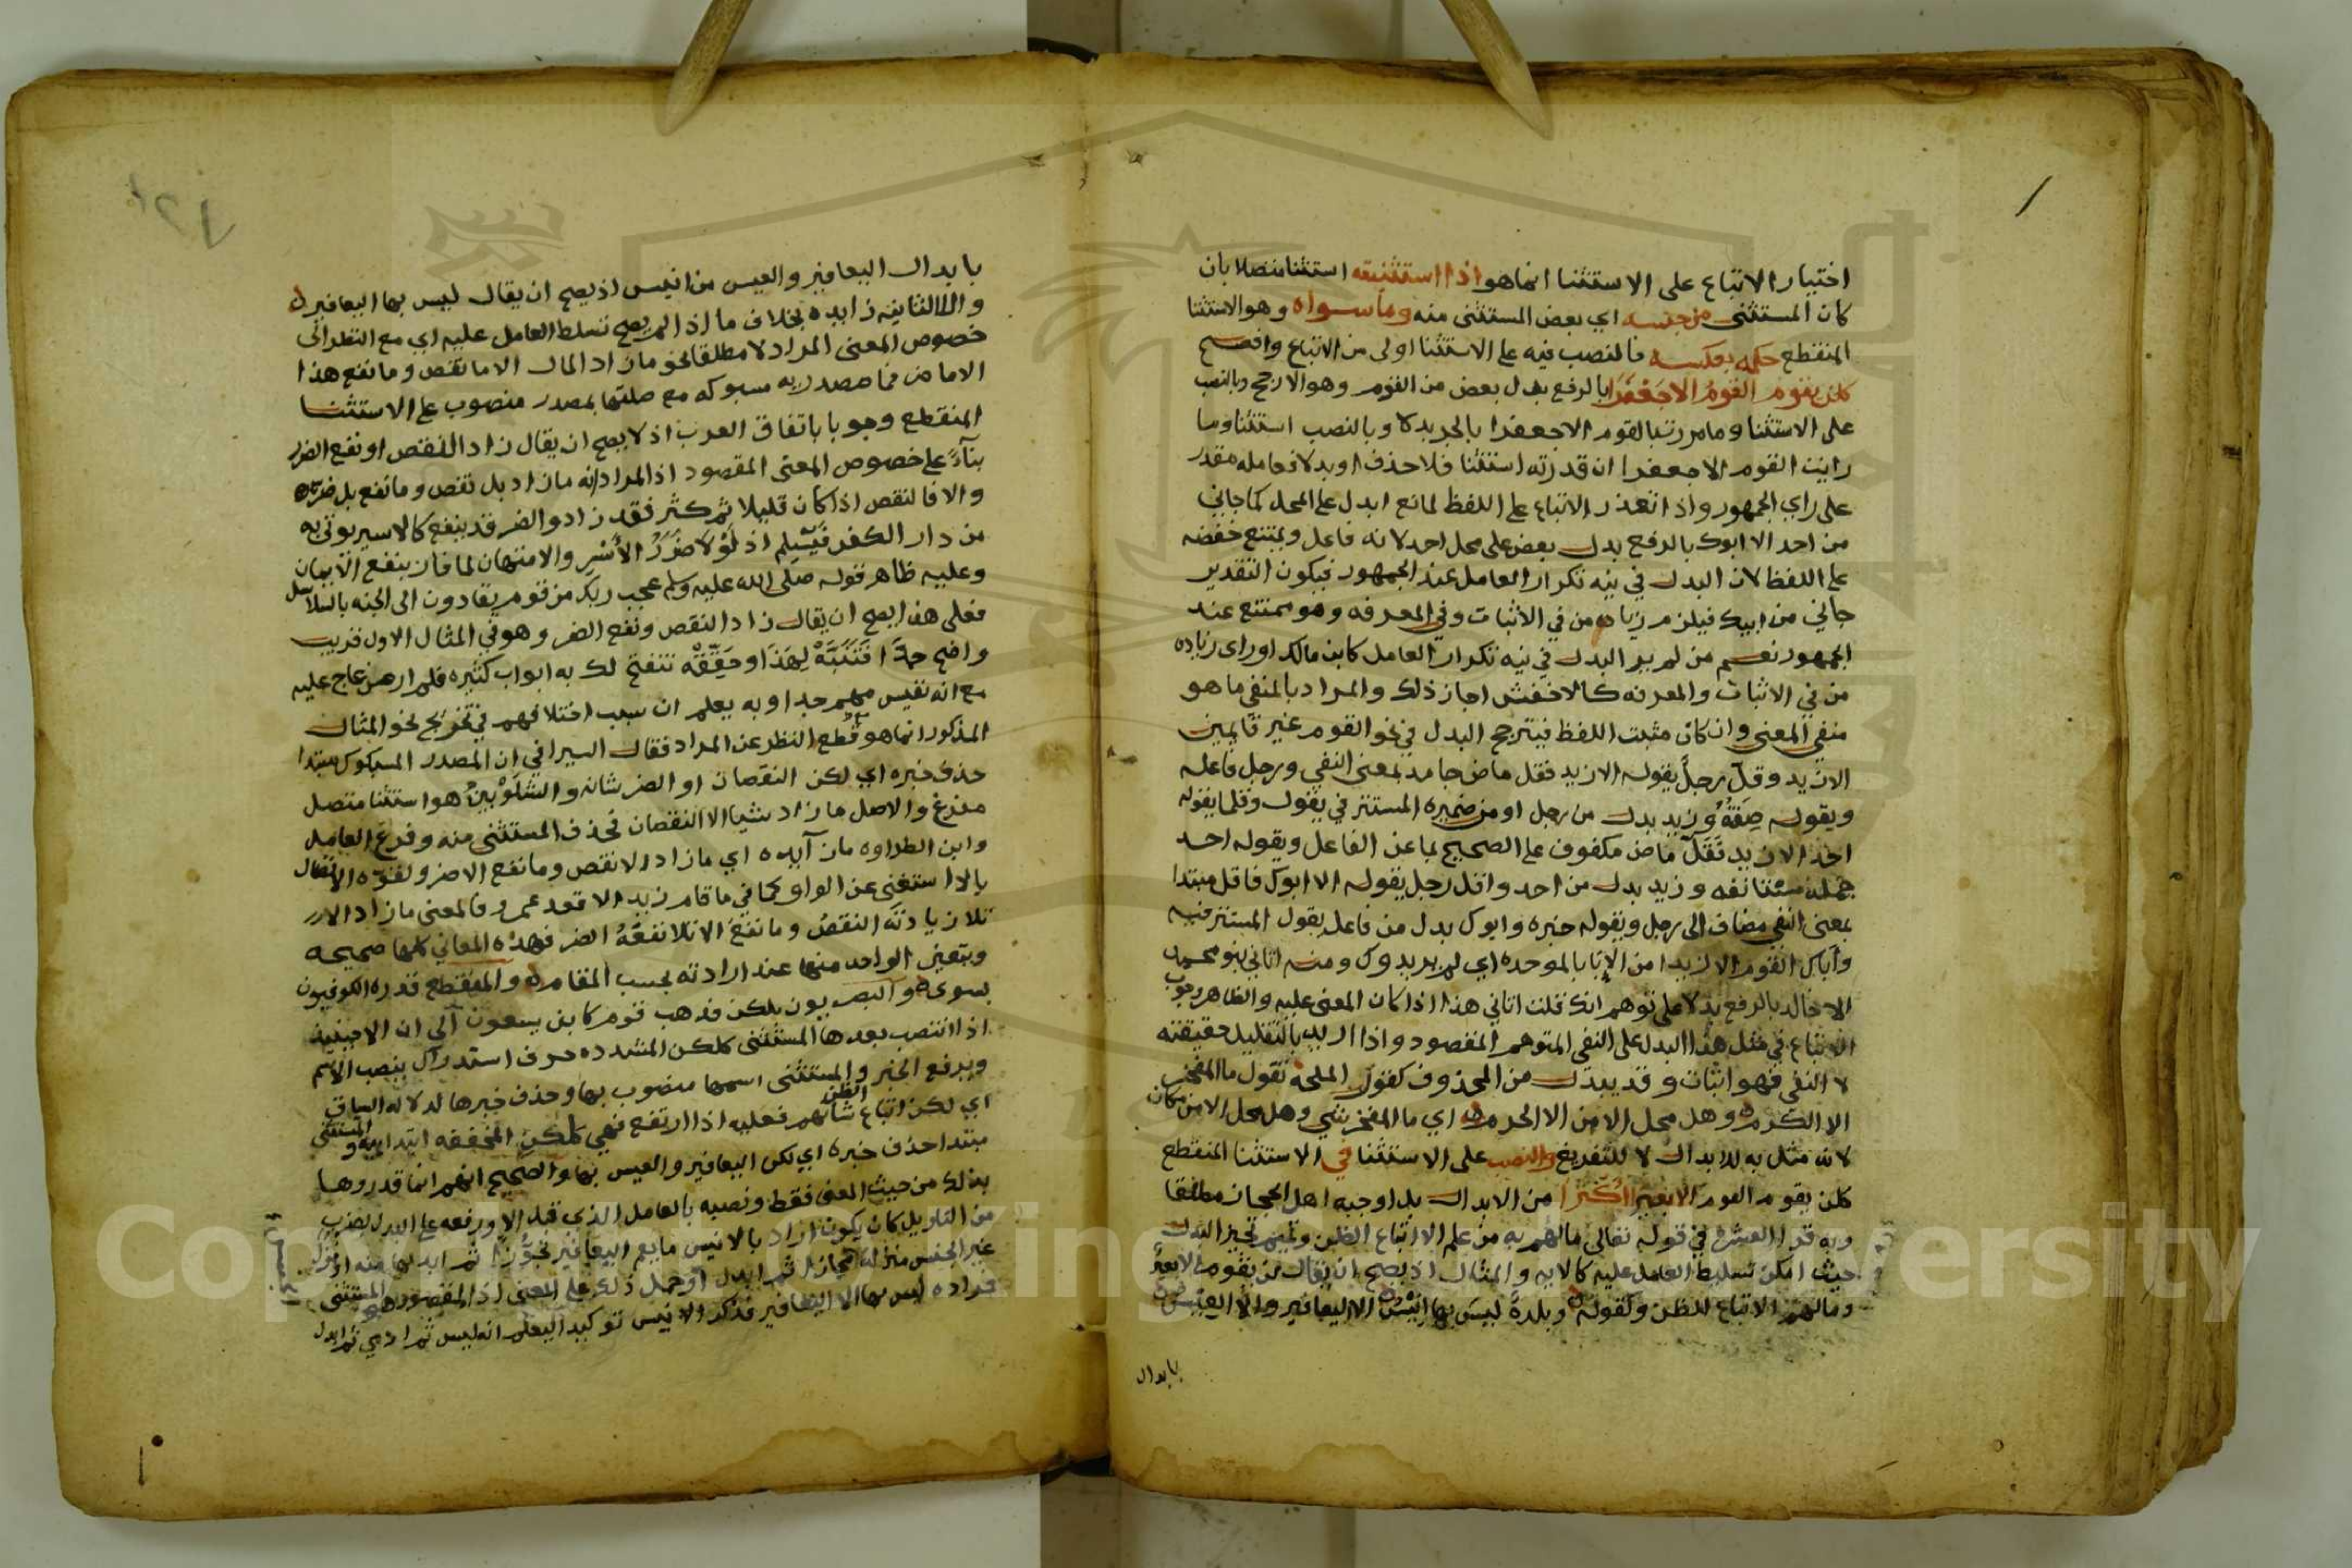 اختيار الاتباع على الاستثنا انما هو اذا استثنيته استثنا متصلا بان
كان المستثنى من جنسه اي بعض المستثنى منه وما سواه وهو الاستثنا
المنقطع حكمه بعكسه فالنصب فيه على الاستثنا اولى من الاتباع وافصح
كلن يقوم القوم الا جعفر بالرفع بدل بعض من القوم وهو الارجح وبالنصب
على الاستثنا وما مررت بالقوم الا جعفرا بالجر بدلا وبالنصب استثنا وما
رايت القوم الا جعفرا ان قدرته استثنا فلا حذف او بدلا فعامله مقدر
على راي الجمهور واذا تعذر الاتباع على اللفظ لمانع ابدل على المحل كما جاني
من احد الا ابوك بالرفع بدل بعض على محل احد لانه فاعل ويمتنع خفضه
على اللفظ لان البدل في نيه تكرار العامل عند الجمهور فيكون التقدير
جاني من ابيك فيلزم زياده من في الاثبات وفي المعرفه وهو ممتنع عند
الجمهور نعم من لم ير البدل في نيه تكرار العامل كابن مالك او راى زياده
من في الاثبات والمعرفه كالاخفش اجاز ذلك والمراد بالمنفي ما هو
منفي المعنى وان كان مثبت اللفظ فيترجح البدل في نحو القوم غير قايمين
الا زيد وقل رجل يقوله الا زيد فقل ماض جامد بمعنى النفي ورجل فاعله
ويقوله صفة وزيد بدل من رجل او من ضميره المستتر في يقول وقلما يقوله
احد الا زيد فقل ماض مكفوف على الصحيح بما عن الفاعل ويقوله احد
جملة مستانفه وزيد بدل من احد واقل رجل يقوله الا ابوك فاقل مبتدا
بمعنى النفي مضاف الى رجل ويقوله خبره وابوك بدل من فاعل يقول المستتر فيه
وابى القوم الا زيدا من الابا بالموحده اي لم يريدوك ومنه اتاني بنو محمد
الا خالد بالرفع بدلا على توهم انك قلت اتاني هذا اذا كان المعنى عليه والظاهر وجوب
الاتباع في مثل هذا البدل على النفي المتوهم المقصود واذا اريد بالتقليل حقيقته
لا النفي فهو اثبات وقد يبدل من المحذوف كقول الملحة تقول ما المفخر
الا الكرم وهل محل الامن الا الحرم اي ما المفخر شي وهل محل الامن مكان
لانه مثل به للابدال لا للتفريغ والنصب على الاستثنا في الاستثنا المنقطع
كلن يقوم القوم الا بعيرا اكثر من الابدال بل اوجبه اهل الحجاز مطلقا
وبه قرا العشرة في قوله تعالى ما لهم به من علم الا اتباع الظن وتميم تجيز البدل
حيث امكن تسليط العامل عليه كالايه والمثال اذ يصح ان يقال لن يقوم الا بعير
وما لهم الا اتباع الظن وكقوله وبلدة ليس بها انيس الا اليعافير والا العيس
بابدال
بابدال اليعافير والعيس من انيس اذ يصح ان يقال ليس بها اليعافير
والا الثانيه زايده بخلاف ما اذا لم يصح تسلط العامل عليه اي مع النظر الى
خصوص المعنى المراد لا مطلقا نحو ما زاد المال الا ما نقص وما نفع هذا
الا ما ضر فما مصدريه مسبوكه مع صلتها بمصدر منصوب على الاستثنا
المنقطع وجوبا باتفاق العرب اذ لا يصح ان يقال زاد النقص او نفع الضر
بنآء على خصوص المعنى المقصود اذ المراد انه ما زاد بل نقص وما نفع بل ضر
والا فالنقص اذا كان قليلا ثم كثر فقد زاد والضر قد ينفع كالاسير يوتى به
من دار الكفر فيسلم اذ لولا ضرر الاسر والامتهان لما فاز بنفع الايمان
وعليه ظاهر قوله صلى الله عليه وسلم عجب ربك من قوم يقادون الى الجنه بالسلاسل
فعلى هذا يصح ان يقال زاد النقص ونفع الضر وهو في المثال الاول قريب
واضح جدا فتنبه لهذا وحققه تنفتح لك به ابواب كثيره فلم ار من عاج عليه
مع انه نفيس مهم جدا وبه يعلم ان سبب اختلافهم في تخريج نحو المثال
المذكور انما هو قطع النظر عن المراد فقال السيرافي ان المصدر المسبوك مبتدا
حذف خبره اي لكن النقصان او الضر شانه والشلوبين هو استثنا متصل
مفرغ والاصل ما زاد شيا الا النقصان فحذف المستثنى منه وفرغ العامل
وابن الطراوه ما زآيده اي ما زاد الا نقص وما نفع الا ضر ولقوه الاتصال
بالا استغنى عن الواو كما في ما قام زيد الا قعد عمرو فالمعنى ما زاد الا
تلا زيادته النقص وما نفع الا تلا نفعه الضر فهذه المعاني كلها صحيحه
ويتعين الواحد منها عند ارادته بحسب المقام والمنقطع قدره الكوفيون
بسوى والبصريون بلكن فذهب قوم كابن يسعون الى ان الا حينئذ
اذا انتصب بعدها المستثنى كلكن المشدده حرف استدراك ينصب الاسم
ويرفع الخبر والمستثنى اسمها منصوب بها وحذف خبرها لدلاله السياق
اي لكن اتباع الظن شانهم فعليه اذا ارتفع فهي كلكن المخففه ابتدائية والمستثنى
مبتدا حذف خبره اي لكن اليعافير والعيس بها والصحيح انهم انما قدروها
بذلك من حيث المعنى فقط ونصبه بالعامل الذي قبل الا ورفعه على البدل بضرب
من التاويل كان يكون اراد بالانيس ما يعم اليعافير تجوزا ثم ابدلها منه او نزل
غير الجنس منزلة مجازا ثم ابدل او حمل ذلك على المعنى اذ المقصود هو المستثنى
فمراده ليس بها الا اليعافير فذكر الانيس توكيدا ليعلم انه ليس ثم ادمي ثم ابدل